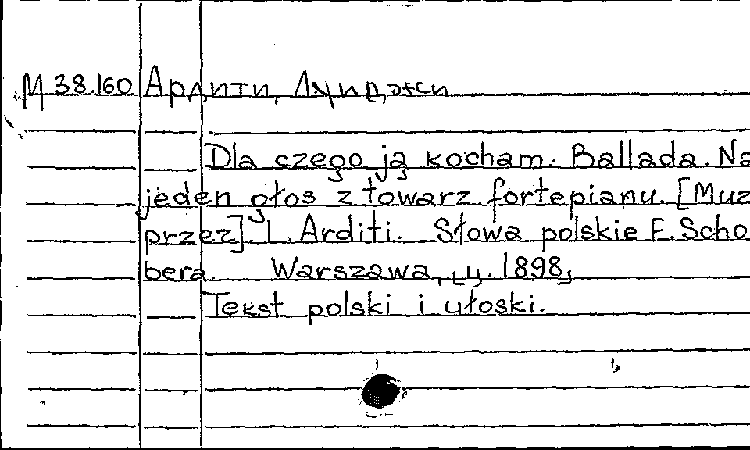 М 38.160 Ардити, Луиджи
Dla czego ją kocham. Ballada. Na
jeden głos z towarz fortepianu. [Muz
przez] L. Arditi. Słowa polskie F. Scho
bera. Warszawa, ц. 1898,
Tekst polski i włoski.